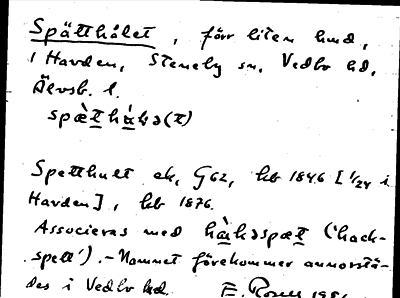 Spætthålet, förr liten lund,
i Harden, Steneby sn, Vedbo hd,
Älvsb. l.
spæ̀t hàlə(t)
Spetthult ek, G62, hb 1846 [1/24 i
Harden], hb 1876.
Associeras med hàləspæt ('hack-
spett'). - Namnet förekommer annorstä-
des i Vedbo hd. E.